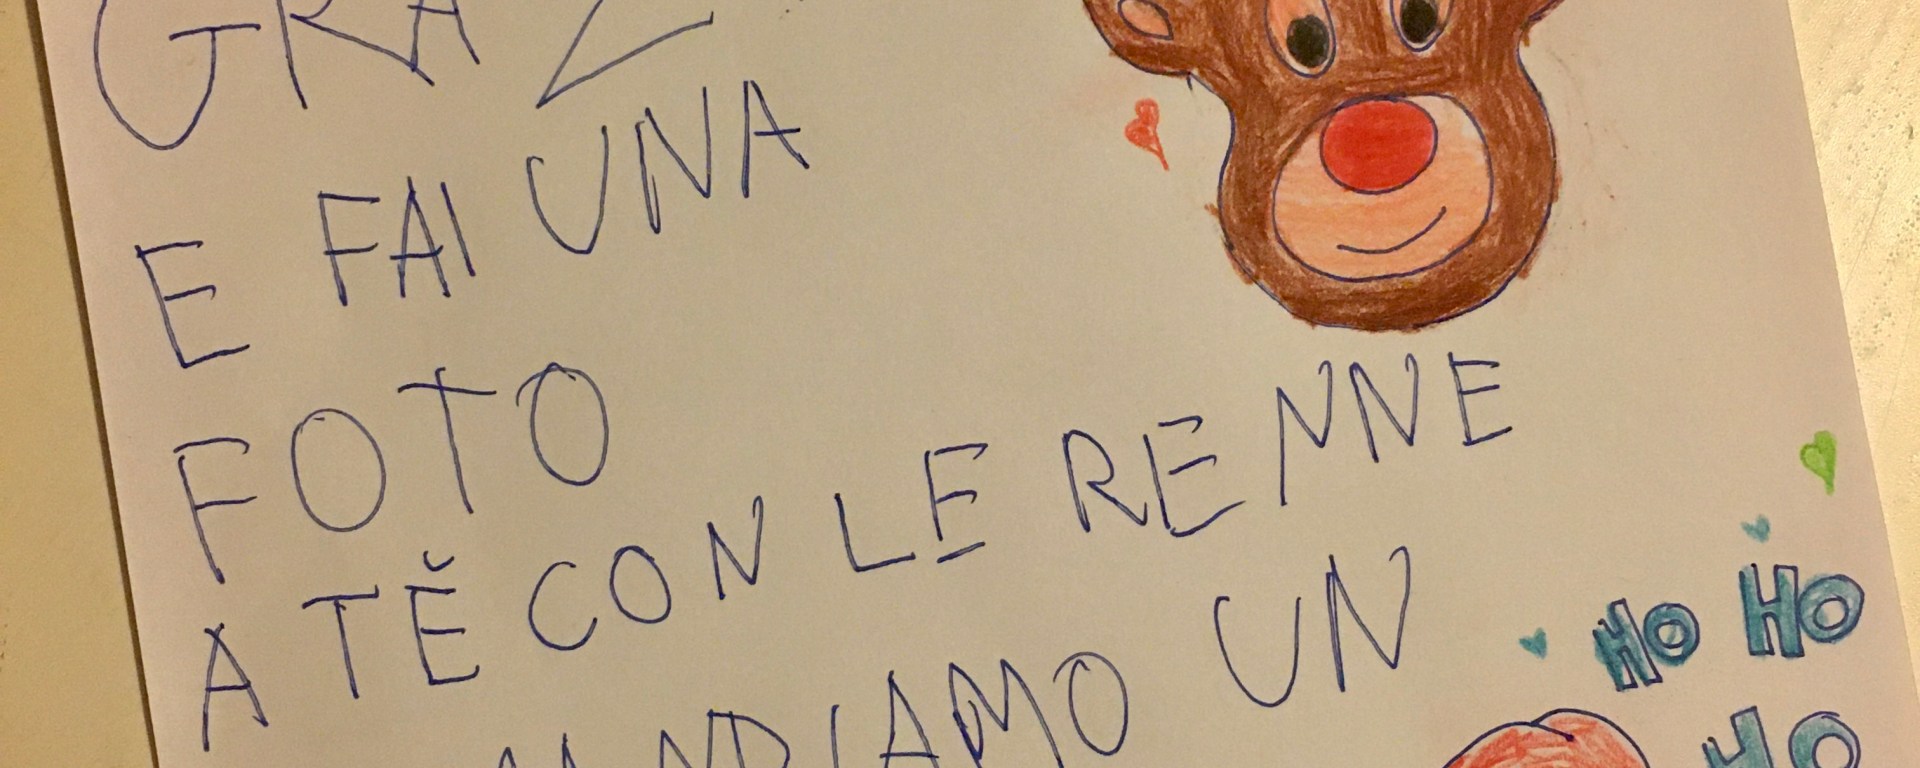 GRAZ
E FAI UNA
FOTO
A TĔ CON LE RENNE
MANDIAMO UN
HO HO
HO